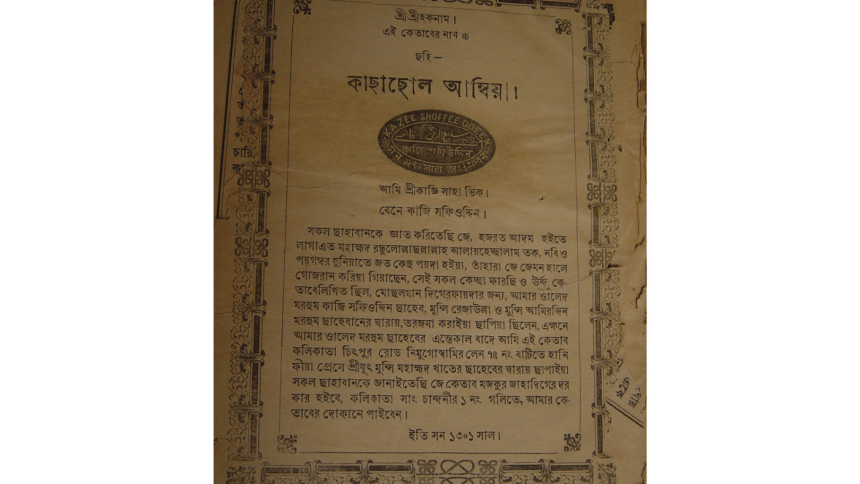 শ্রীশ্রীহকনাম।
এই কেতাবের নাম *
ছহি—
কাছাছোল আম্বিয়া।
KAZEE SHOFFEE OODEEN
কাজি শফিউদ্দিন
আমি শ্রীকাজি সাহা ভিক।
বেনে কাজি সফিওদ্দিন।
সকল ছাহাবানকে জ্ঞাত করিতেছি জে, হজরত আদম হইতে
লাগাএত মহাম্মদ রছুলোল্লাছাল্লাল্লাহ আলায়হেচ্ছালাম তক, নবিও
পয়গম্বর দুনিয়াতে জত কেহ পয়দা হইয়া, তাঁহারা জে জেমন হালে
গোজরান করিয়া গিয়াছেন, সেই সকল কেচ্ছা ফারছি ও উর্দ্দু কে-
তাবেলিখিত ছিল, মোছলমান দিগেরফায়দার জন্য, আমার ওালেদ
মরহুম কাজি সফিওদ্দিন ছাহেব, মুন্সি রেজাউল্লা ও মুন্সি আমিরদ্দিন
মরহুম ছাহেবানের দ্বারায়, তরজমা করাইয়া ছাপিয়া ছিলেন, এক্ষনে
আমার ওালেদ মরহুম ছাহেবের এন্তেকাল বাদে আমি এই কেতাব
কলিকাতা চিৎপুর রোড নিমুগোস্বামির লেন ৭৫ নং বাটিতে হানি
ফীয়া প্রেসে শ্রীযুৎ মুন্সি মহাম্মদ খাতের ছাহেবের দ্বারায় ছাপাইয়া
সকল ছাহাবানকে জানাইতেছি জে কেতাব মজকুর জাহাদিগের দর
কার হইবে, কলিকাতা সাং চান্দনীর ১ নং গলিতে, আমার কে-
তাবের দোকানে পাইবেন।
ইতি সন ১৩০১ সাল।